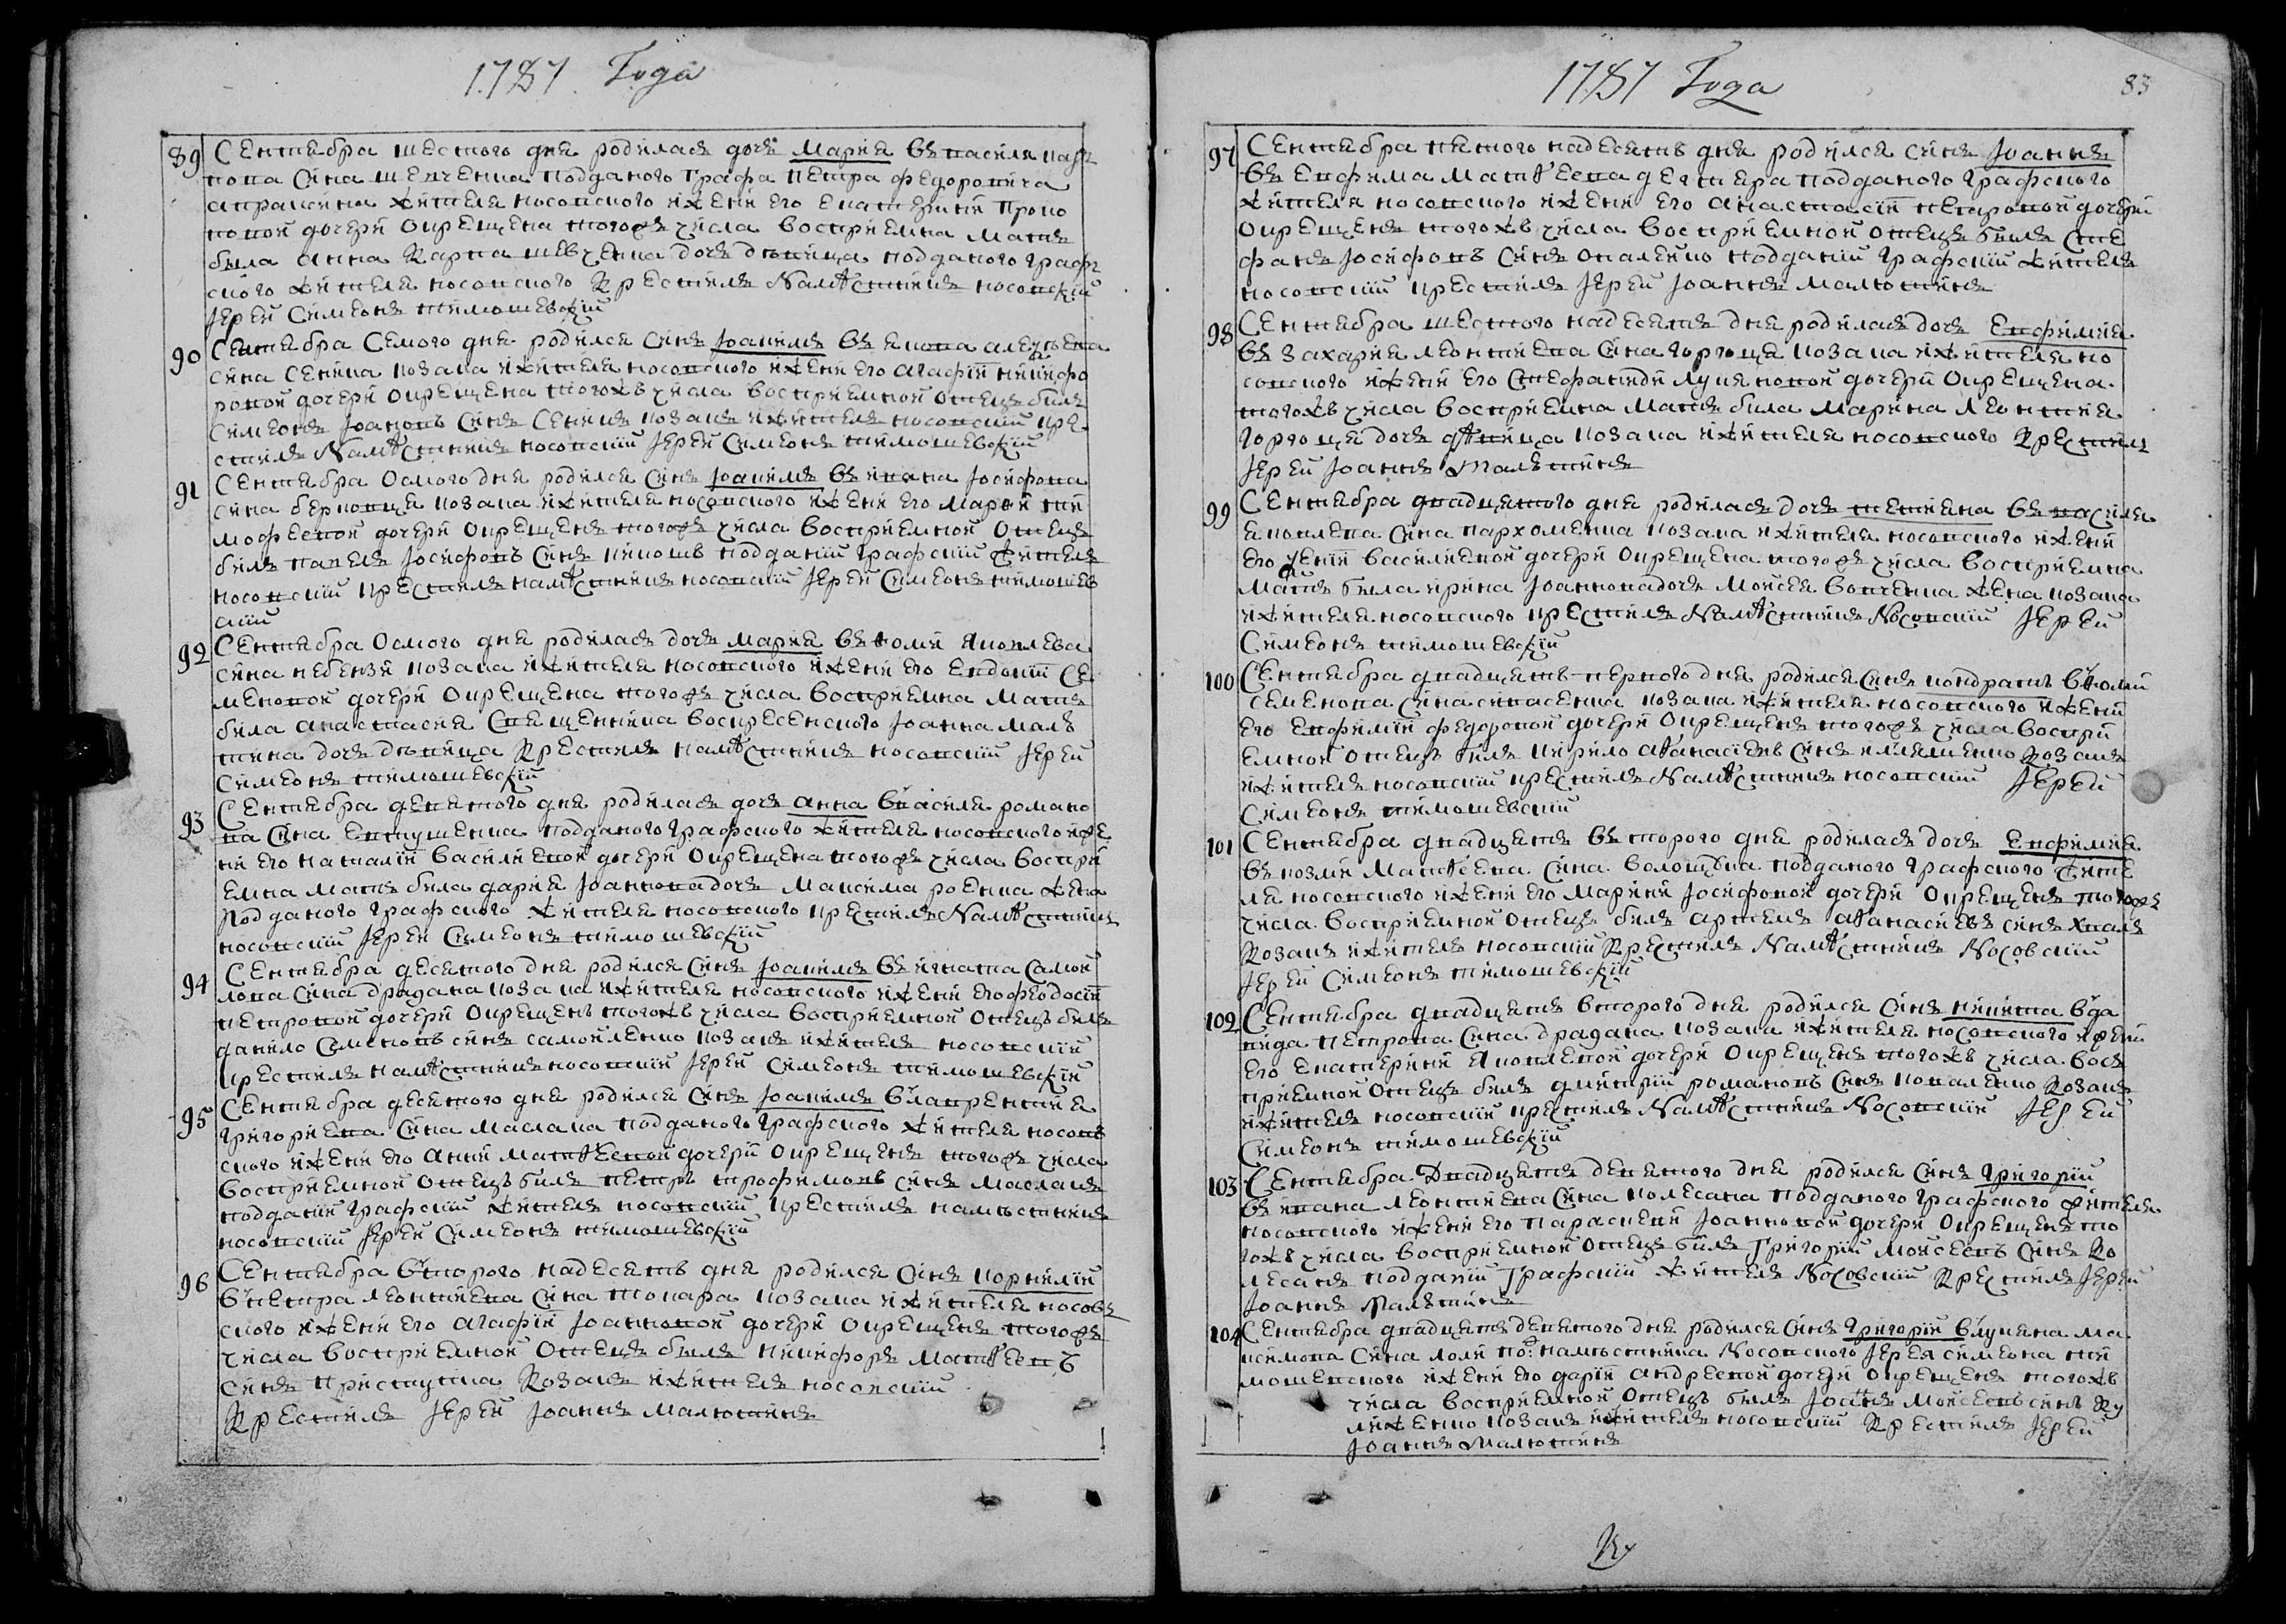 1787 Года
89 Сентября шестого дня родилася дочь Мария въ василя кар
пова сина шевченка подданого графа петра федоровича
апраксина жителя носовского и жени его екатерини проко
повой дочери окрещена тогожъ числа восприемна мать
била анна карпа шевченка дочь дъвица подданого граф
ского жителя носовского крестилъ намѣстникъ носовский
Іерей Симеонъ тимошевский
90 Сентября Семого дня родился синъ Іоакимъ въ
сина сеника козака и жителя носовского и жени его агафии никифо
ровой дочери окрещена тогожъ числа восприемной отецъ билъ
Симеонъ Іоановъ синъ Сеникъ козакъ и житель носовский кре
стилъ намѣстникъ носовский Іерей Симеонъ тимошевский
91 Сентября Осмого дня родился синъ Іоакимъ въ ивана Іосифова
сина козака и жителя носовского и жени его Марии ти
мофеевой дочери окрещенъ тогожъ числа восприемной Отецъ
билъ павелъ Іосифовъ синъ подданий графский житель
носовский крестилъ намѣстникъ носовский Іерей Симеонъ тимошев
ский
92 Сентября Осмого дня родилася дочь Мария въ фоми яковлева
сина небензи козака и жителя носовского и жени его евдокии се
меновой дочери Окрещена тогожъ числа восприемна Мать
била анастасия священика воскресенского Іоанна Малъ
тина дочь дъвица крестилъ намѣстникъ носовский Іерей
Симеонъ тимошевский
93 Сентября девятого дня родилася дочь анна въ василя романо
ва сина евтушенка подданого графского жителя носовского и же
ни его наталии василиевой дочери окрещена тогожъ числа воспри
емна мать била дария Іоаннова дочь Максима роенка жена
подданого графского жителя носовского крестилъ намѣстникъ
носовский Іерей Симеонъ тимошевский
94 Сентября десятого дня родился синъ Іоакимъ въ игната самой
лова сина драдана козака и жителя носовского и жени его феодосии
петровой дочери Окрещенъ тогожъ числа восприемной Отецъ билъ
данило Семеновъ синъ самойленко козакъ и житель носовский
крестилъ намѣстникъ носовский Іерей Симеонъ тимошевский
95 Сентября десятого дня родился синъ Іоакимъ въ лаврентия
григориева сина маслака подданого графского жителя носовъ
ского и жени его анни матѣевой дочери окрещенъ тогожъ числа
восприемной Отецъ билъ петръ трофимовъ синъ маслакъ
подданий графский житель носовский крестилъ намъстникъ
носовский Іерей Симеонъ тимошевский
96 Сентября второго надесять дня родился синъ корнилий
въ петра леонтиева сина токара козака и жителя носовъ
ского и жени его агафии Іоанновой дочери окрещенъ тогожъ
числа восприемной Отецъ билъ никифоръ матѣевъ
синъ приступка козакъ и житель носовский
крестилъ Іерей Іоаннъ малютинъ
1787 Года
83
97 Сентября пятого надесять дня родился синъ Іоаннъ
въ евфима матѣева подданого графского
жителя носовского и жени его анастасии петровой дочери
окрещенъ тогожъ числа восприемной отецъ билъ сте
фанъ Іосифовъ синъ подданий графский житель
носовский крестилъ Іерей Іоаннъ малютинъ
98 Сентября шестого надесять дня родилася дочь евфимия
въ захария леонтиева сина козака и жителя но
совского и жени его стефаниди лукяновой дочери окрещена
тогожъ числа восприемна мать била марина леонтия
дочь дѣвица козака и жителя носовского крестилъ
Іерей Іоаннъ Малътинъ
99 Сентября двадцятого дня родилася дочь тетияна въ василя
яковлева сина пархоменка козака и жителя носовского и жени
его василиевой дочери окрещена тогожъ числа восприемна
мать била ирина Іоаннова дочь Моисея вовченка жена козака
и жителя носовского крестилъ намѣстникъ носовский Іерей
Симеонъ тимошевский
100 Сентября двадцять первого дня родился синъ кондратъ въ фоми
семенова сина козака и жителя носовского и жени
его евфимии федоровой дочери окрещенъ тогожъ числа воспри
емной отецъ билъ кирило афанасиевъ синъ козакъ
и житель носовский крестилъ намѣстникъ носовский Іерей
Симеонъ тимошевский
101 Сентября двадцять второго дня родилася дочь евфимия
въ козми матѣева сина подданого графского жите
ля носовского и жени его марини Іосифовой дочери окрещенъ тогожъ
числа восприемной отецъ билъ артемъ афанасиевъ синъ
козакъ и житель носовский крестилъ намѣстникъ Носовский
Іерей Симеонъ тимошевский
102 Сентября двадцять второго дня родился синъ никита въ да
вида петрова сина драдана козака и жителя носовского и жени
его екатерини яковлевой дочери окрещенъ тогожъ числа вос
приемной Отецъ билъ димитрий романовъ синъ коваленко козакъ
и житель носовский крестилъ намѣстникъ носовский Іерей
Симеонъ тимошевский
103 Сентября двадцять девятого дня родился синъ григорий
въ ивана леонтиева сина колесака подданого графского жителя
носовского и жени его параскеви Іоанновой дочери окрещенъ то
гожъ числа восприемной отецъ билъ григорий моисеевъ синъ ко
лесакъ подданий графский житель носовский крестилъ Іерей
Іоаннъ Малютинъ
104 Сентября двадцять девятого дня родился синъ григорий въ лукяна ма
ксимова сина намъстника носовского Іерея симеона ти
мошевского и жени его дарии андреевой дочери окрещенъ тогожъ
числа восприемной отецъ билъ Іоаннъ моисеевъ синъ ку
лиженко козакъ и житель носовский крестилъ Іерей
Іоаннъ малютинъ